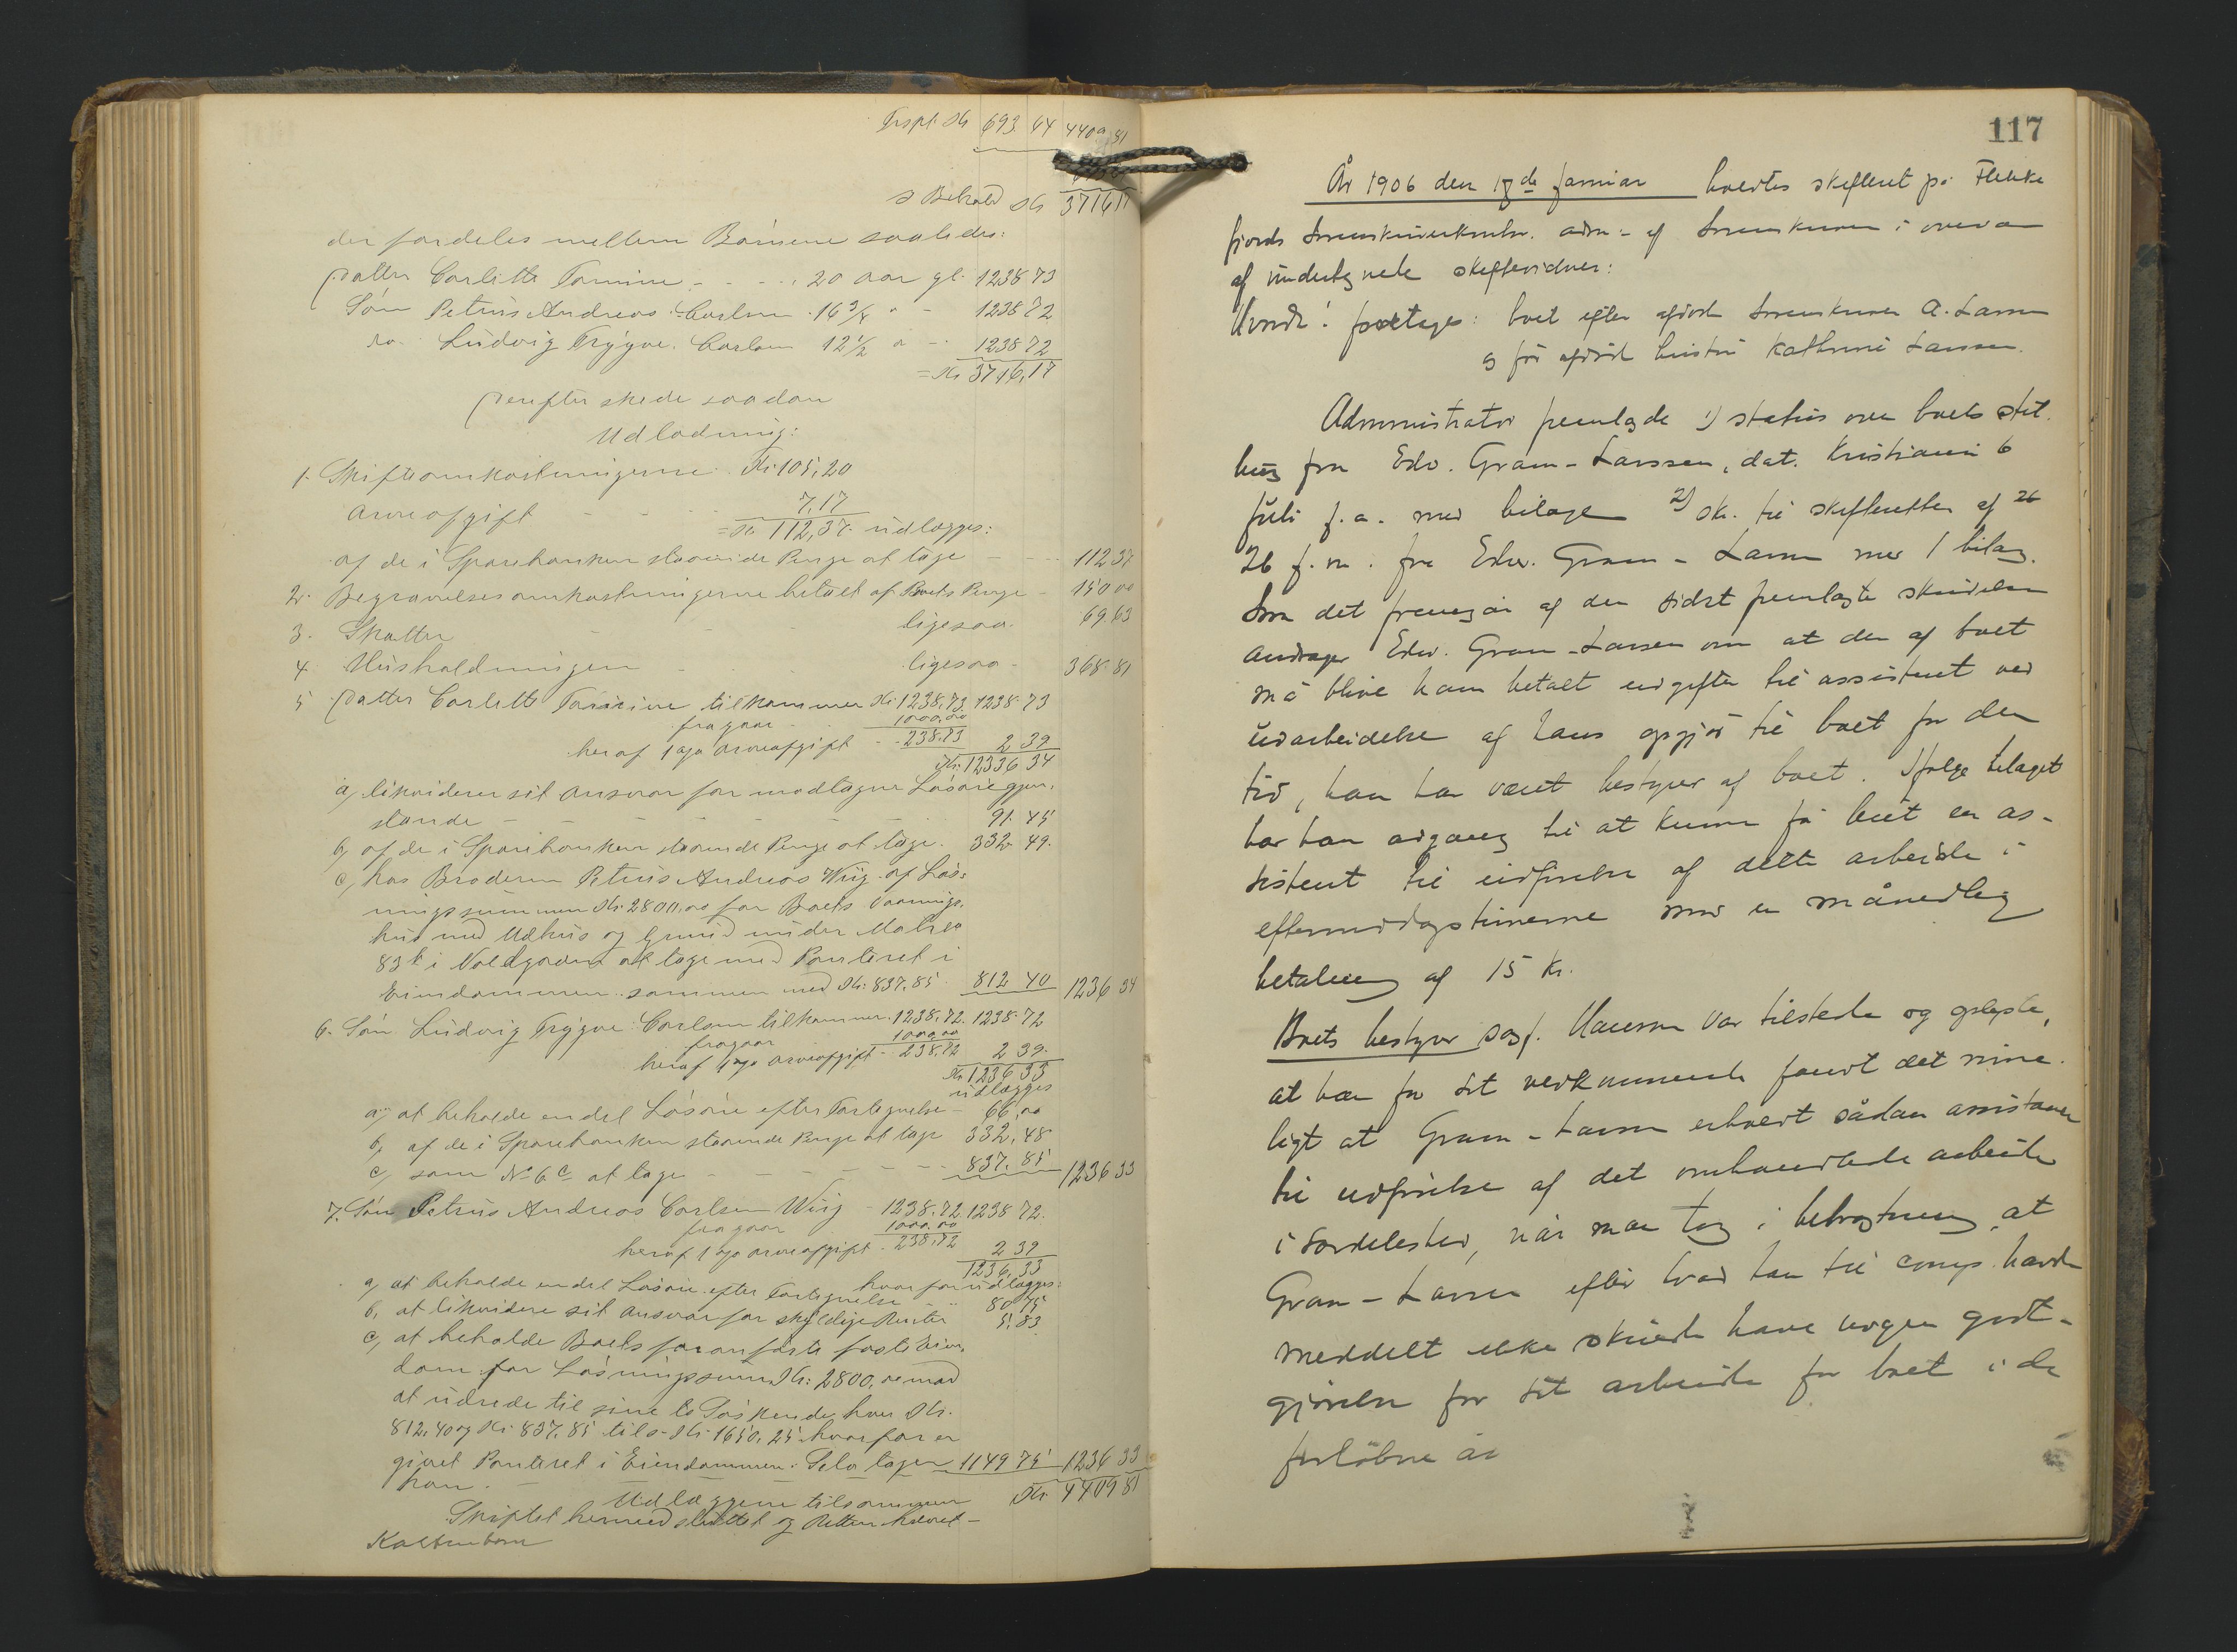 Trspt. Kr 693 64 4409 81
= Behold Kr 3716 17
der fordeles mellem Börnene saaledes:
Datter Carlette Tomine - - - 20 aar gl. 1238 73
Sön Petrus Andreas Carlsen 16 3/4 " - 1238 72
do. Ludvig Trygve Carlsen 12 1/2 " - 1238 72
= Kr 3716,17
Derefter skede saadan
Udlodning:
1. Skifteomkostningerne Kr 105,20
Arveafgift - - - 7,17
= Kr 112,37 udlægges:
af de i Sparebanken staaende Penge at tage - - 112 37
2. Begravelsesomkostningerne betalt af Boets Penge - 150 00
3. Skatter - - - ligesaa. 69 63
4. Husholdningen - ligesaa - 368 81
5 Datter Carlette Tomine tilkommer Kr 1238,73 1238 73
fragaar - 1000,00
heraf 1 % Arveafgift - - 238,73 2 39
Kr. 12336 34
a, likviderer sit Ansvar for modtagne Lösöregjen-
stande - - - - - 91 45
b, af de i Sparebanken staaende Penge at tage. 332 49.
c, hos Broderen Petrus Andreas Wiig af Lös-
ningssummen Kr. 2800,00 for Boets Vaanings-
hus med Udhus og Grund under Matr. No
83 b i Voldgaden at tage med Panteret i
Eiendommen sammen med Kr: 837,85 812 40 1236 34
6. Sön Ludvig Trygve Carlsen tilkommer 1238,72 1238 72
fragaar 1000,00
heraf 1 % Arveafgift - 238,72 2 39
Kr 1236 33
udlægges
a, at beholde en del Lösöre efter Fortegnelse - 66,00
b, af de i Sparebanken staaende Penge at tage 332,48
c, som No 6 c at tage - - - - - 837,85 1236 33
7. Sön Petrus Andreas Carlsen Wiig - 1238,72 1238 72.
fragaar 1000,00
heraf 1 % Arveafgift - 238,72 2 39
1236,33
hvorfor udlægges:
a, at beholde en del Lösöre efter Fortegnelse - 80 75
b, at likvidere sit Ansvar for skyldige Renter 5,83
c, at beholde Boets foranförte faste Eien-
dom for Lösningssum Kr: 2800,00 mod
at udrede til sine to Söskende hver Kr.
812,40 og Kr. 837,85 tils. Kr. 1650,25 hvorfor er
givet Panteret i Eiendommen. Selv tager 1149 75 1236 33
han. - - - -
Udlæggene tilsammen Kr 4409 81
Skiftet hermed sluttet og Retten hævet -
Kaltenborn
117
År 1906 den 17de januar holdtes skifteret på Flekke
fjords Sorenskriverkontor. adm. af Sorenskriveren i overvær
af undertegnede skiftevidner:
Hvorda: foretages: boet efter afdöde Sorenskriver A. Larsen
og för afdöd hustru Kathrine Larsen.
Administrator fremlagde 1) status over boets stil.
ling fra Edv. Gram-Larssen, dat. Kristiania 6
juli f.a. med bilage 2) skr. til skifteretten af 26
26 f.m. fra Edv. Gram-Larsen med 1 bilag.
Som det fremgår af den sidst fremlagte skrivelse
andrager Edv. Gram-Larsen om at der af boet
må blive ham betalt udgifter til assistent ved
udarbeidelse af hans opgjör til boet for den
tid, han har været bestyrer af boet. Ifölge bilaget
har han adgang til at kunne få leiet en as-
sistent til udförelse af dette arbeide i
eftermiddagstimerne mod en månedlig
betaling af 15 kr.
Boets bestyrer sagf. Hansson var tilstede og oplyste,
at han for sit vedkommende fandt det rime-
ligt at Gram-Larsen erholdt sådan assistance
til udförelse af det omhandlede arbeide
i særdeleshed, når man tog i betragtning, at
Gram-Larsen efter hvad han til comp. havde
meddelt ikke skulde have nogen godt-
gjörelse for sit arbeide for boet i de
forløbne år